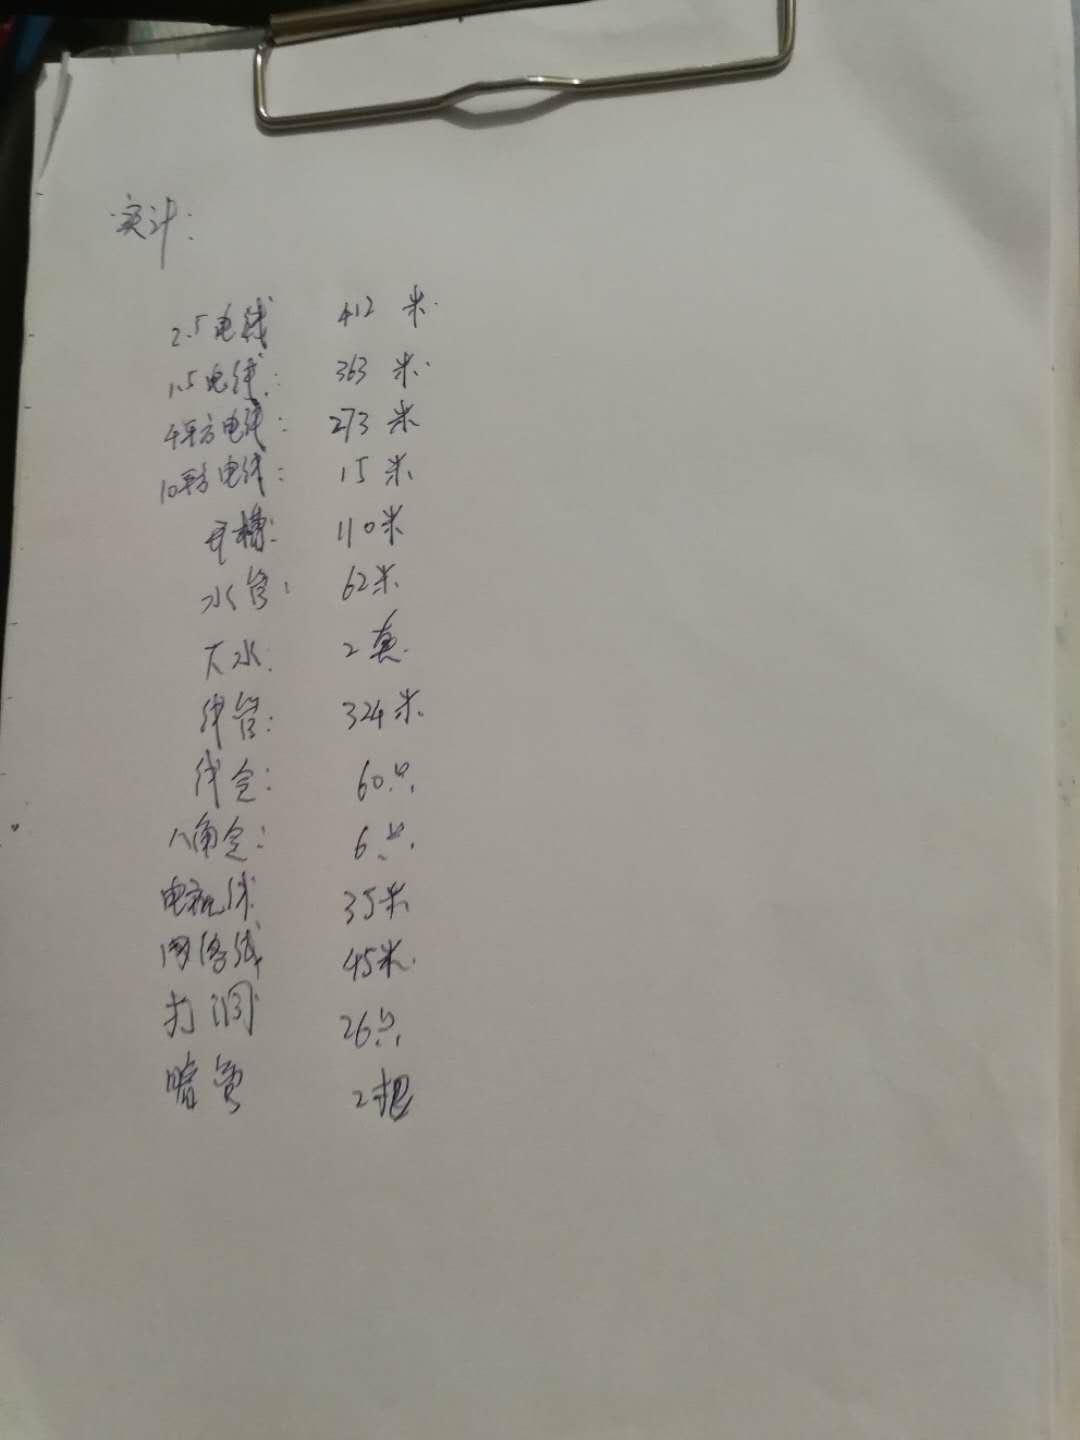 实计:
2.5电线 412 米.
1.5电线: 363 米.
4平方电线: 273 米
10平方电线: 15 米
开槽: 110米
水管: 62米
下水: 2套.
线管: 324米.
线合: 60只.
八角合: 6只.
电视线 35米
网络线 45米.
打洞 26只
暗管 2根